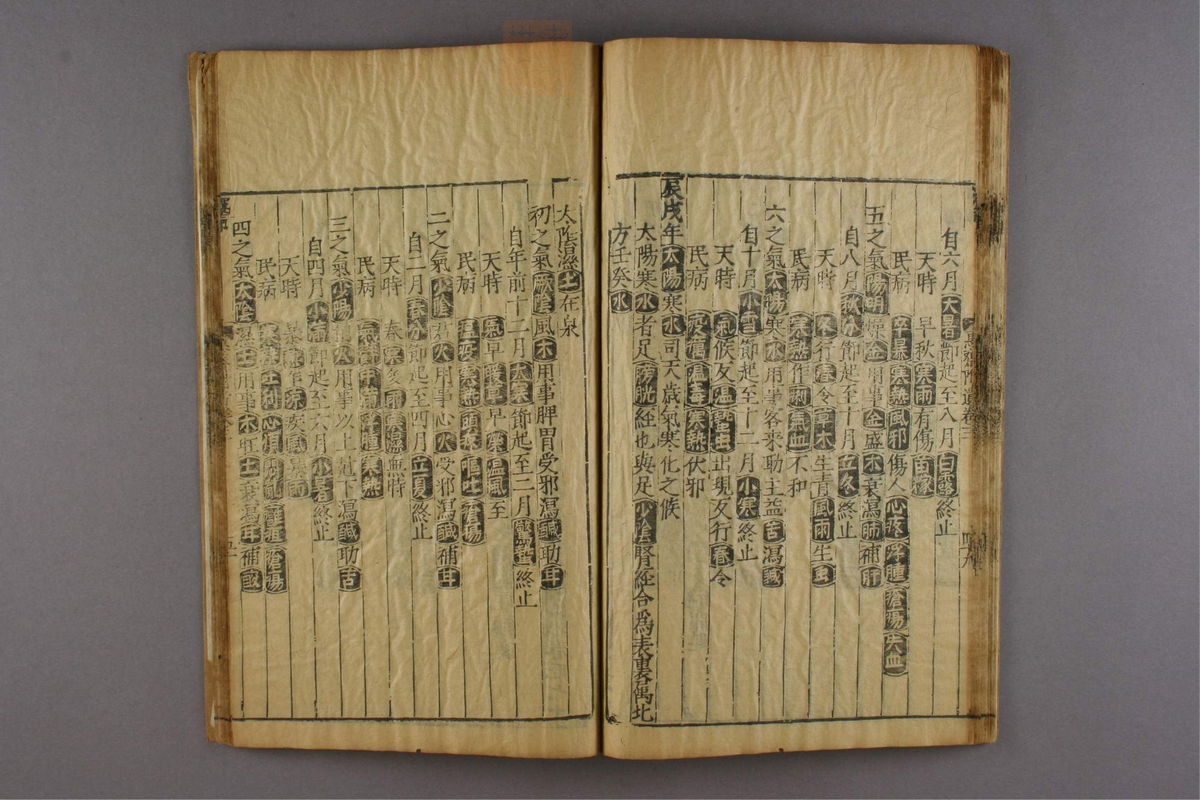 自六月大暑節起至八月白露終止
天時　早秋寒雨有傷苗稼
民病　卒暴寒熱風邪傷人心疼浮腫瘡瘍失血
五之氣陽明燥金用事金盛木衰瀉肺補肝
自八月秋分節起至十月立冬終止
天時　行春令草木生青風雨生虫
民病　寒熱作痢氣血不和
六之氣太陽寒水用事客來助主益苦瀉鹹
自十月小雪節起至十二月小寒終止
天時　氣候反溫蟄虫出現反行春令
民病　疫癘溫毒寒熱伏邪
辰戌年太陽寒水司天歲氣寒化之候
太陽寒水者足膀胱經也與足少陰腎經合爲表裏屬北
方壬癸水
太陰濕土在泉
初之氣厥陰風木用事脾胃受邪瀉鹹助甘
自年前十二月大寒節起至二月驚蟄終止
天時　氣早暖草早榮溫風至
民病　瘟疫寒熱頭疼嘔吐瘡瘍
二之氣少陰君火用事心火受邪瀉鹹補甘
自二月春分節起至四月立夏終止
天時　春寒多雨寒濕無時
民病　氣鬱中滿浮腫寒熱
三之氣少陽相火用事以上尅下瀉鹹助苦
自四月小滿節起至六月小暑終止
天時　暴熱乍涼疾風暴雨
民病　寒熱吐利心煩悶亂癰疽瘡瘍
四之氣太陰濕土用事木旺土衰瀉甘補酸